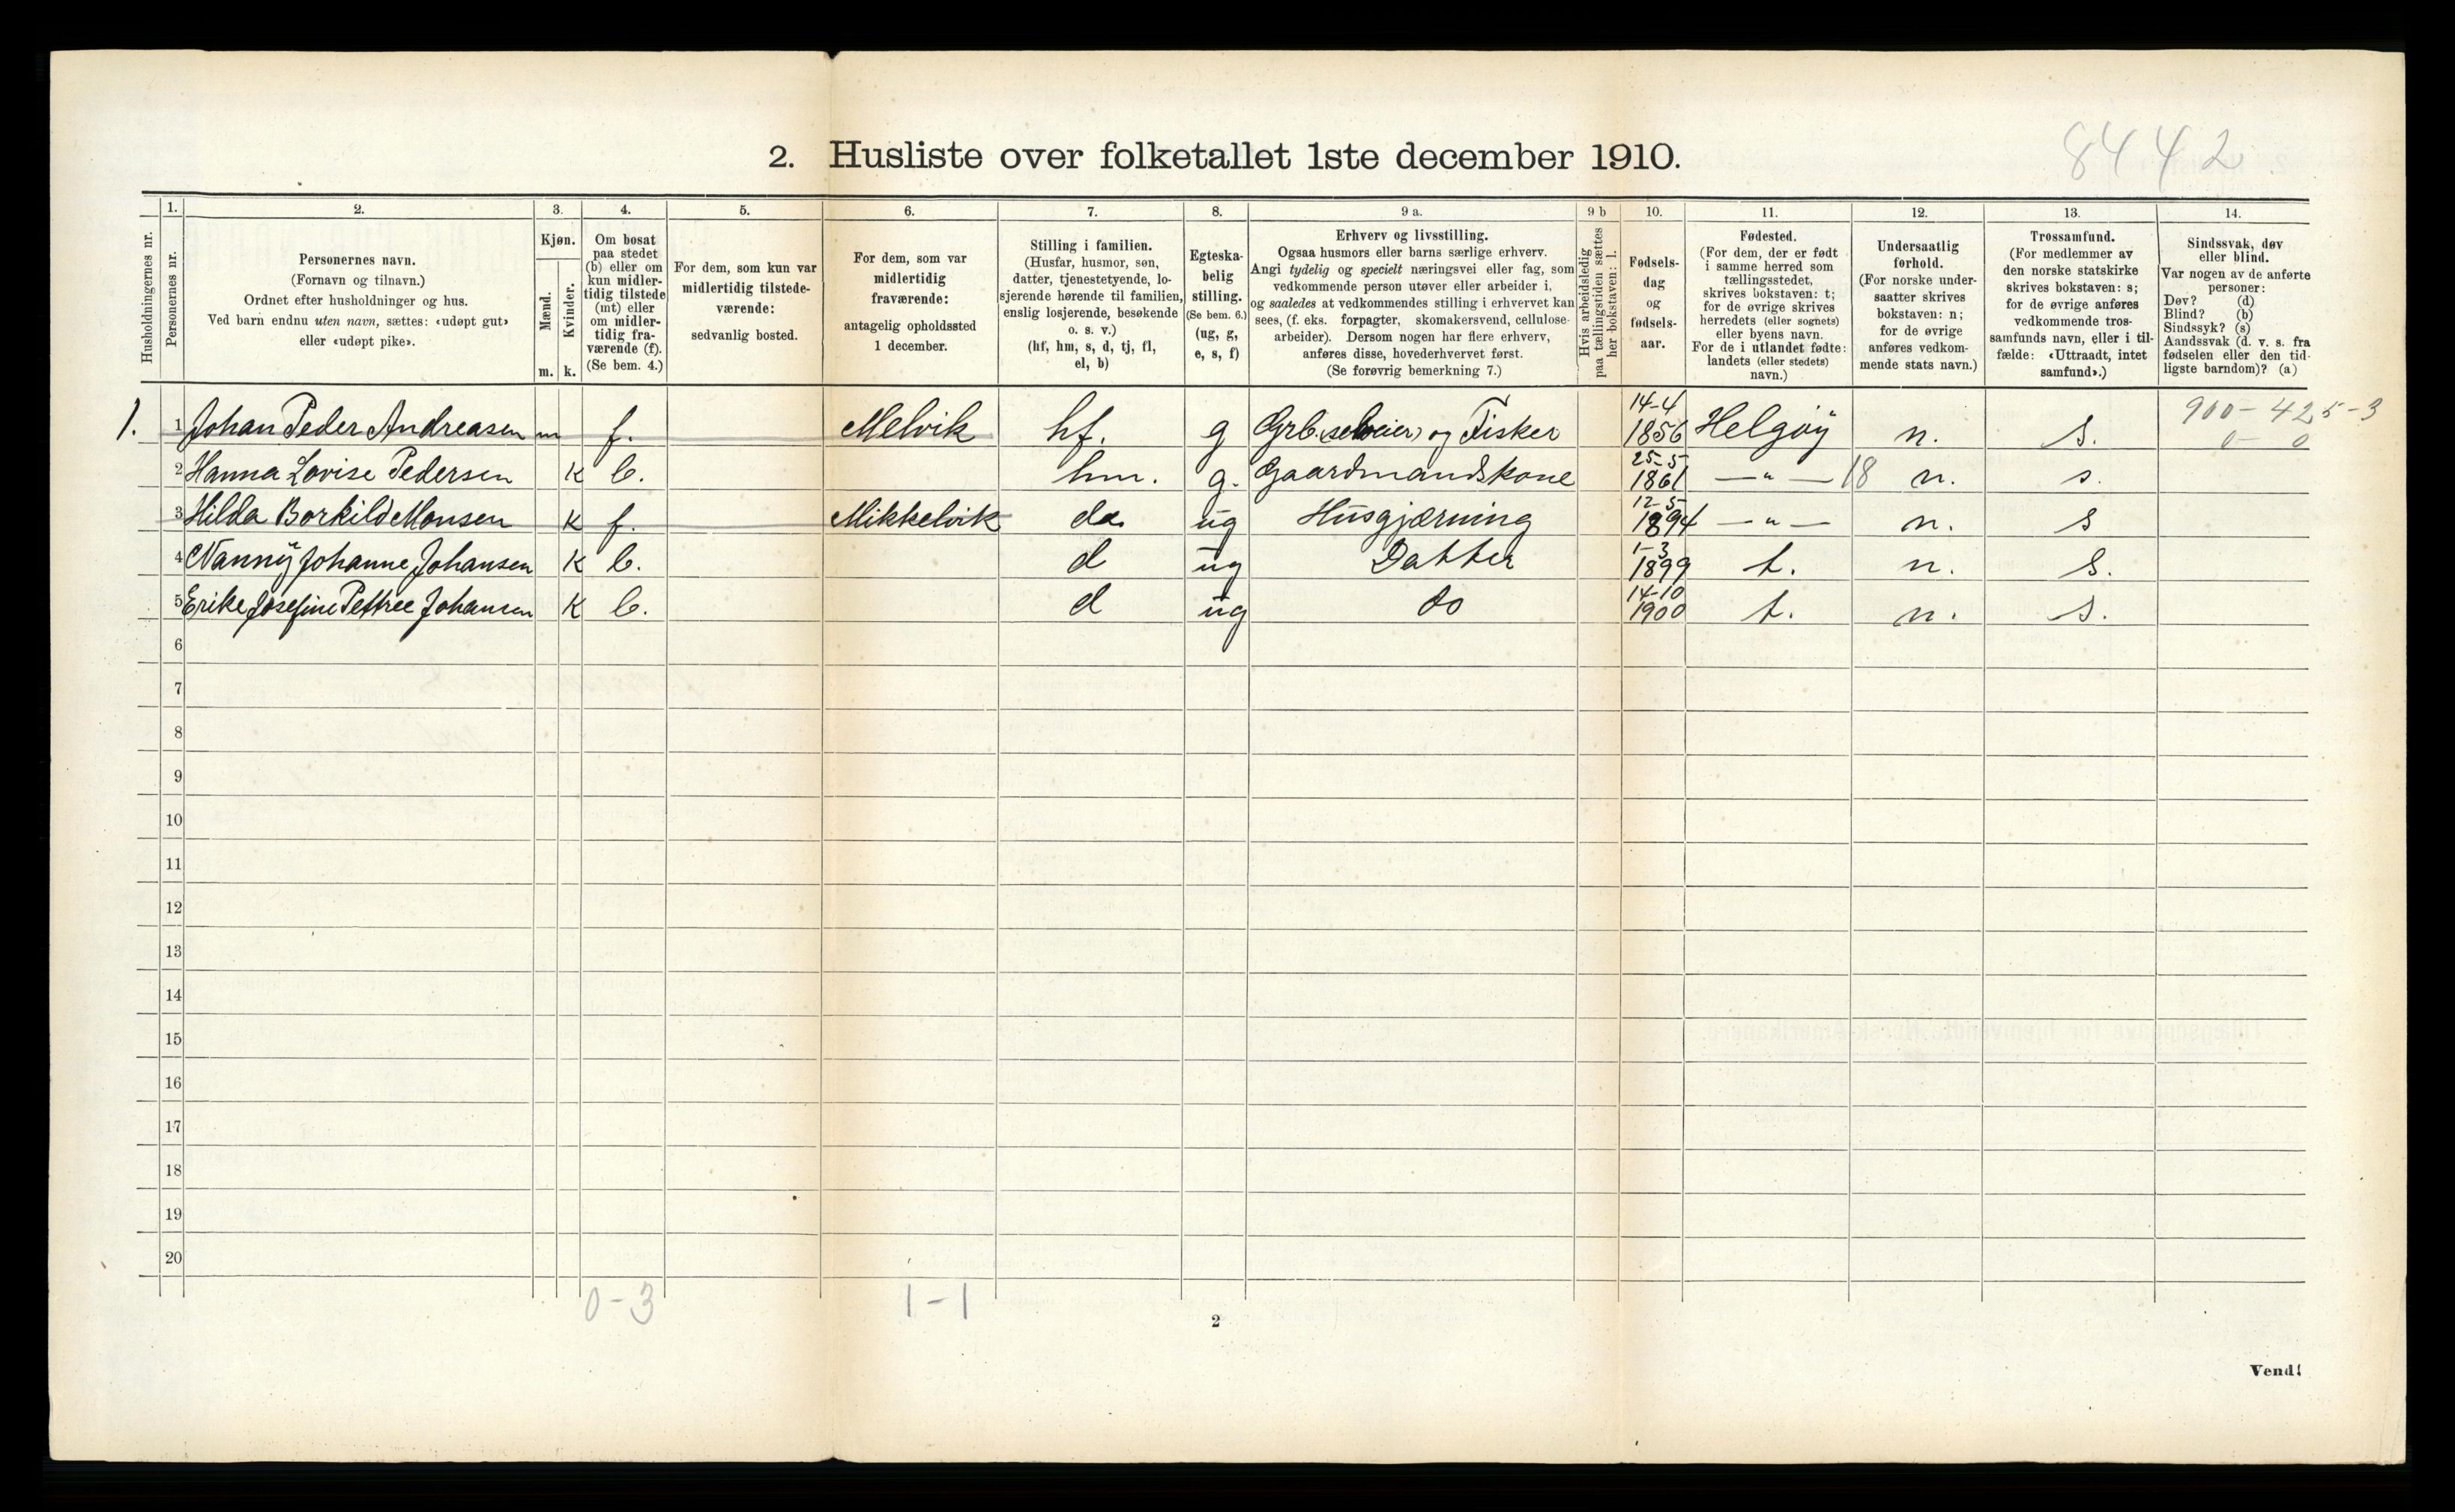 8442
2. Husliste over folketallet 1ste december 1910.
Husholdningernes nr.
1.
Personernes nr.
2.
Personernes navn.
(Fornavn og tilnavn.)
Ordnet efter husholdninger og hus.
Ved barn endnu uten navn, sættes: «udøpt gut»
eller «udøpt pike».
3.
Kjøn.
Mænd.
Kvinder.
m. k.
4.
Om bosat
paa stedet
(b) eller om
kun midler-
tidig tilstede
(mt) eller
om midler-
tidig fra-
værende (f).
(Se bem. 4.)
5.
For dem, som kun var
midlertidig tilstede-
værende:
sedvanlig bosted.
6.
For dem, som var
midlertidig
fraværende:
antagelig opholdssted
1 december.
7.
Stilling i familien.
(Husfar, husmor, søn,
datter, tjenestetyende, lo-
sjerende hørende til familien,
enslig losjerende, besøkende
o. s. v.)
(hf, hm, s, d, tj, fl,
el, b)
8.
Egteska-
belig
stilling.
(Se bem. 6.)
(ug, g,
e, s, f)
9 a.
Erhverv og livsstilling.
Ogsaa husmors eller barns særlige erhverv.
Angi tydelig og specielt næringsvei eller fag, som
vedkommende person utøver eller arbeider i,
og saaledes at vedkommendes stilling i erhvervet kan
sees, (f. eks. forpagter, skomakersvend, cellulose-
arbeider). Dersom nogen har flere erhverv,
anføres disse, hovederhvervet først.
(Se forøvrig bemerkning 7.)
9 b
Hvis arbeidsledig
paa tællingstiden sættes
her bokstaven: l.
10.
Fødsels-
dag
og
fødsels-
aar.
11.
Fødested.
(For dem, der er født
i samme herred som
tællingsstedet,
skrives bokstaven: t;
for de øvrige skrives
herredets (eller sognets)
eller byens navn.
For de i utlandet fødte:
landets (eller stedets)
navn.)
12.
Undersaatlig
forhold.
(For norske under-
saatter skrives
bokstaven: n;
for de øvrige
anføres vedkom-
mende stats navn.)
13.
Trossamfund.
(For medlemmer av
den norske statskirke
skrives bokstaven: s;
for de øvrige anføres
vedkommende tros-
samfunds navn, eller i til-
fælde: «Uttraadt, intet
samfund».)
14.
Sindssvak, døv
eller blind.
Var nogen av de anførte
personer:
Døv? (d)
Blind? (b)
Sindssyk? (s)
Aandssvak (d. v. s. fra
fødselen eller den tid-
ligste barndom)? (a)
900-425-3
0-0
1. 1 Johan Peder Andreasen m f. Melvik hf. g Grb. (selveier) og Fisker 14-4 1856 Helgøy n. s.
2 Hanna Lovise Pedersen K b. hm. g. Gaardmandskone 25-5 1861 —"— 18 n. s.
3 Hilda Borkild Monsen K f. Mikkelvik da ug Husgjærning 12-5 1894 —"— n. s
4 Nanny Johanne Johansen K b. d ug Datter 1-3 1899 t. n. s.
5 Erike Josefine Pettree Johansen K b. d ug do 14-10 1900 t. n. s.
6
7
8
9
10
11
12
13
14
15
16
17
18
19
20
0-3
1-1
2
Vend!